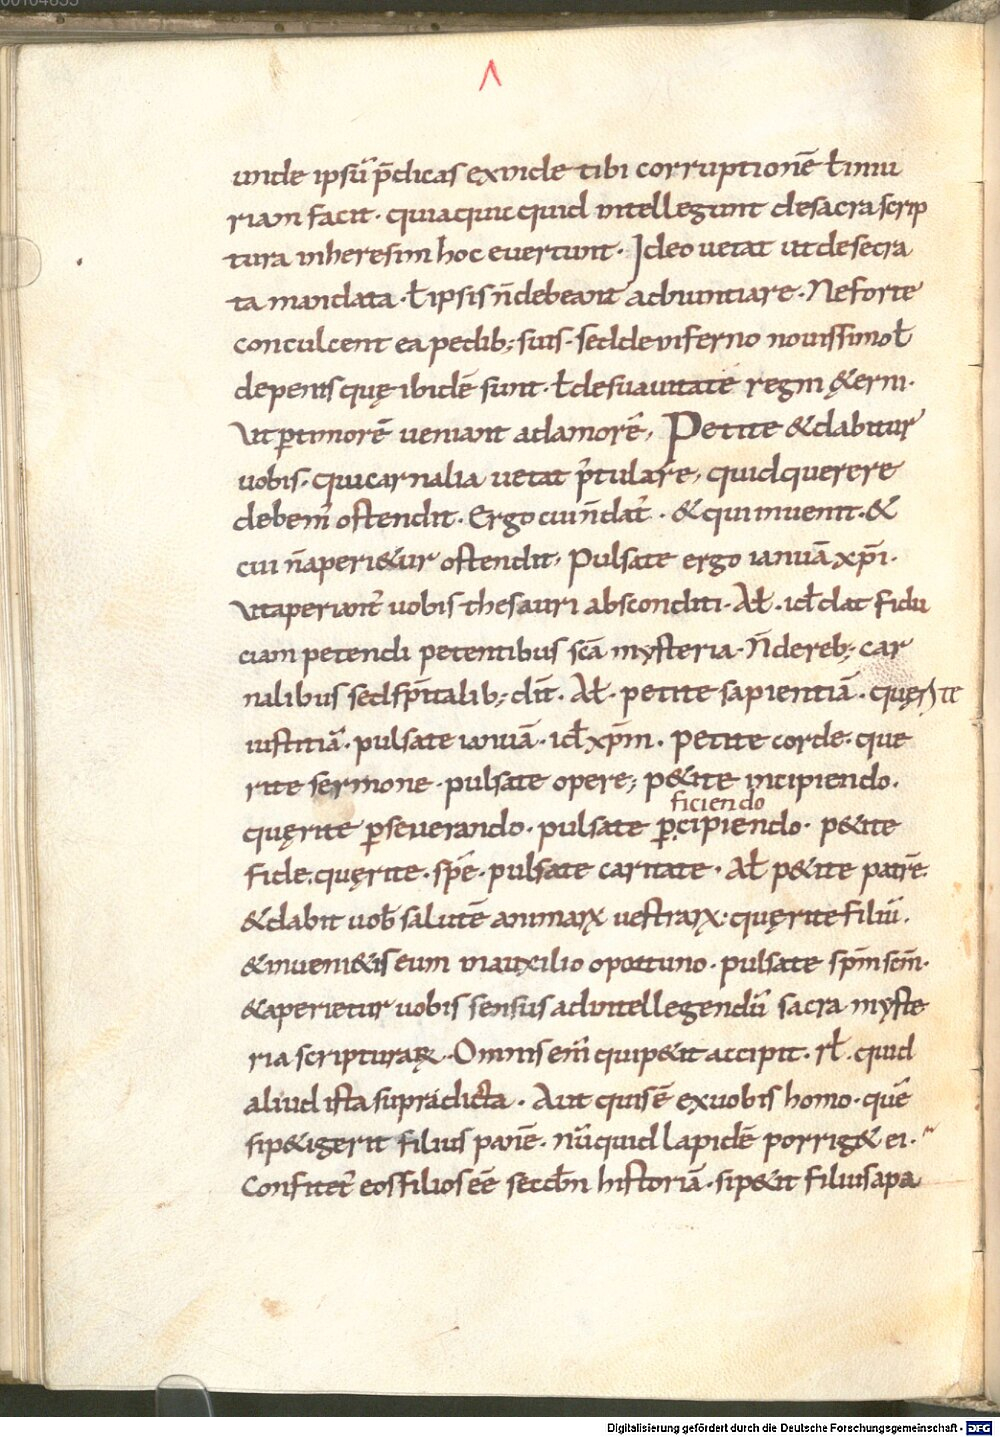 00104653
unde ipsū p̄dicas exinde tibi corruptionē ƚ iniu
riam facit · quia quicquid intellegunt de sacra scrip
tura in heresim hoc evertunt · Ideo uetat ut de secra
ta mandata · ƚ ipsis n̄ debeant adnuntiare · Ne forte
conculcent ea pedib; suis · sed de inferno nouissimo ƚ
de penis quę ibidē sunt · ƚ de suauitate regni & erni ·
Ut p̱ timorē ueniant ad amorē, Petite & dabitur
uobis · qui carnalia uetat p̄tulare, quid querere
debem̄ ostendit · Ergo cui n̄ dat̄ · & qui inuenit · &
cui n̄ aperi&ur ostendit, Pulsate ergo ianuā xp̄i ·
Ut aperiant̄ uobis thesauri absconditi · Aƚ · id ƚ dat fidu
ciam petendi petentibus scā mysteria · N̄ de reb; car
nalibus sed sp̄italib; dn̄t · Aƚ · petite sapientiā · quęrite
iustitiā · pulsate ianuā · id ƚ xp̄m · petite corde · que
rite sermone · pulsate opere; p&ite incipiendo ·
ficiendo
quęrite p̱seuerando · pulsate p̱cipiendo · p&ite
fide · quęrite · spē · pulsate caritate · Aƚ p&ite patrē
& dabit uob̄ salutē animaꝝ uestraꝝ · quęrite filiū ·
& inueni&is eum in auxilio opottuno · pulsate sp̄m scm̄ ·
& aperietur uobis sensus ad intellegendū sacra myste
ria scripturaꝝ · Omnis em̄ qui p&it accipit · rƚ · quid
aliud ista supradicta · Aut quis ē ex uobis homo · quē
si p&igerit filius panē · nū quid lapidē porrig& ei ·
Confitet̄ eos filios eē secđm historiā · si p&it filius a pa
Digitalisierung gefördert durch die Deutsche Forschungsgemeinschaft - DFG